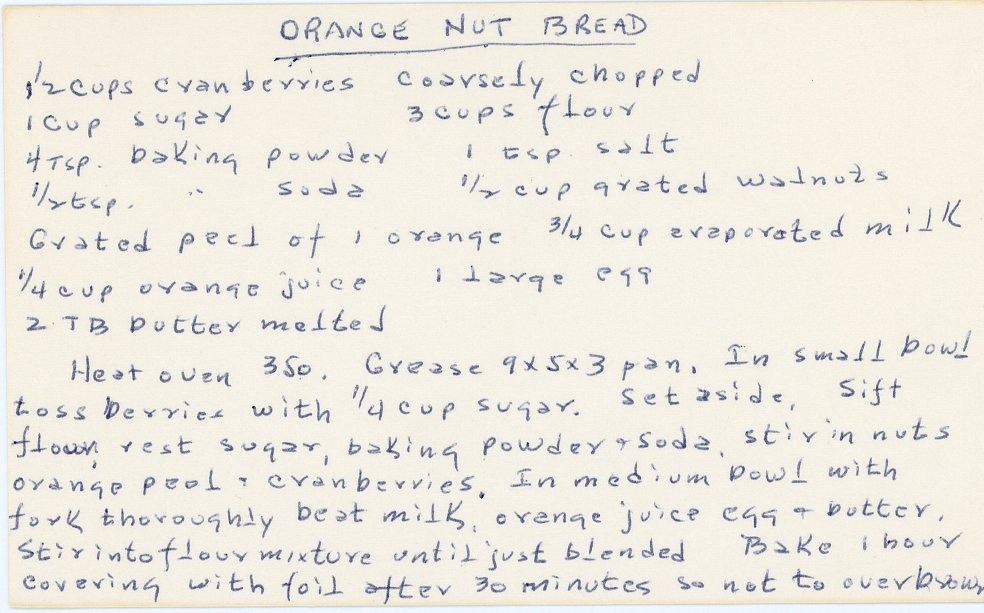 ORANGE NUT BREAD
1 1/2 cups cranberries coarsely chopped
1 cup sugar 3 cups flour
4 Tsp. baking powder 1 tsp. salt
1/2 tsp. " soda 1/2 cup grated walnuts
Grated peel of 1 orange 3/4 cup evaporated milk
1/4 cup orange juice 1 large egg
2 TB butter melted
Heat oven 350. Grease 9x5x3 pan. In small bowl
toss berries with 1/4 cup sugar. Set aside. Sift
flour, rest sugar, baking powder + soda. stir in nuts
orange peel + cranberries. In medium bowl with
fork thoroughly beat milk, orange juice egg + butter.
Stir into flour mixture until just blended Bake 1 hour
covering with foil after 30 minutes so not to overbrown